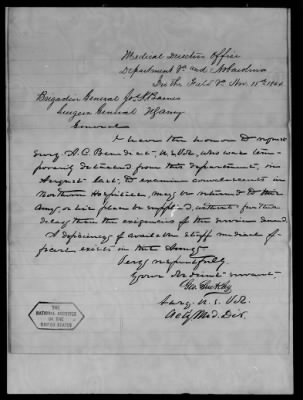 Medical Directors Office
Department Va and No Carolina
In the Field Va Nov. 15th 1864
Brigadier General Jos K Barnes
Surgeon General U.S. Army
General
I have the honor to request
Surg A.C. U.S. Vols, who was tem-
porarily detached from this department, in
August last, to examine convalescents in
Northern Hospitals, may be returned to this
Army, or his place be supplied, without further
delay than the exigencies of the service demand.
A deficiency of available staff medical of-
ficers exists in this Army
Very respectfully
Your obedient servant
Geo. Suckley
Surg. U.S. Vols.
Actg Med. Dir.
THE
NATIONAL ARCHIVES
OF THE
UNITED STATES